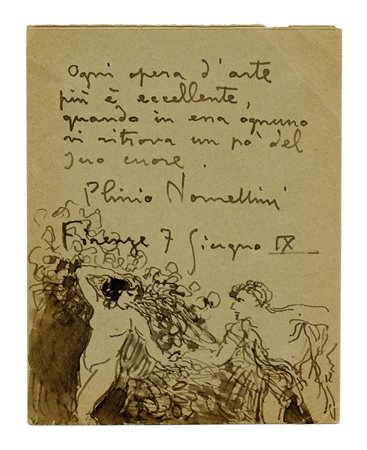 Ogni opera d'arte
più è eccellente,
quando in essa ognuno
vi ritrova un pò del
suo cuore.
Plinio Nomellini
Firenze 7 Giugno IX